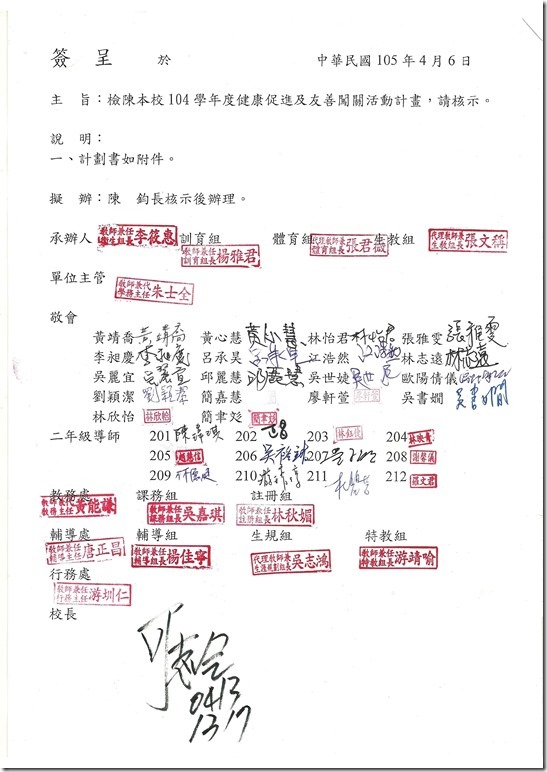 簽 呈 於 中華民國105年4月6日
主 旨：檢陳本校104學年度健康促進及友善闖關活動計畫，請核示。
說 明：
一、計劃書如附件。
擬 辦：陳 鈞長核示後辦理。
承辦人 教師兼任衛生組長李筱惠 訓育組 教師兼任訓育組長楊雅君 體育組 代理教師兼體育組長張君薇 生教組 代理教師兼生教組長張文稱
單位主管 教師兼代學務主任朱士全
敬會
黃靖喬 黃靖喬 黃心慧 黃心慧 林怡君 林怡君 張雅雯 張雅雯
李昶慶 李昶慶 呂承昊 江浩然 林志遠 林志遠
吳麗宜 吳麗宜 邱麗慧 邱麗慧 吳世婕 歐陽倩儀
劉穎潔 劉穎潔 簡嘉慧 廖軒萱 吳書嫺
林欣怡 林欣怡 簡聿婈 簡聿婈
二年級導師 201 202 203 204
205 206 207 208
209 210 211 212
教務處 教師兼任教務主任黃能謙 課務組 教師兼任課務組長吳嘉琪 註冊組 教師兼任註冊組長林秋媚
輔導處 教師兼任輔導主任唐正昌 輔導組 教師兼任輔導組長楊佳寧 生規組 代理教師兼生涯規劃組長吳志鴻 特教組 教師兼任特教組長游靖喻
行務處 教師兼任行務主任游圳仁
校長
0413
1317